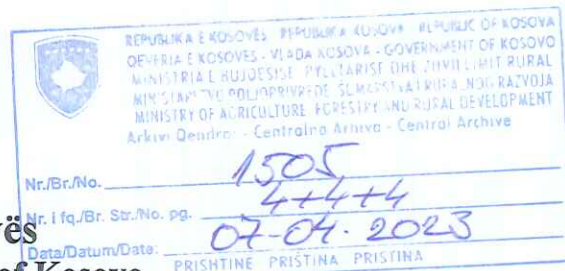 REPUBLIKA E KOSOVËS - REPUBLIKA KOSOVA - REPUBLIC OF KOSOVA
QEVERIA E KOSOVËS - VLADA KOSOVA - GOVERNMENT OF KOSOVO
MINISTRIA E BUJQËSISË PYLLTARISË DHE ZHVILLIMIT RURAL
MINISTARSTVO POLJOPRIVREDE ŠUMARSTVA I RURALNOG RAZVOJA
MINISTRY OF AGRICULTURE FORESTRY AND RURAL DEVELOPMENT
Arkivi Qendror - Centralna Arhiva - Central Archive
Nr./Br./No. 1505
Nr. i fq./Br. Str./No. pg. 4+4+4
Data/Datum/Date: 07-04-2023
PRISHTINË PRIŠTINA PRISTINA
of Kosovo